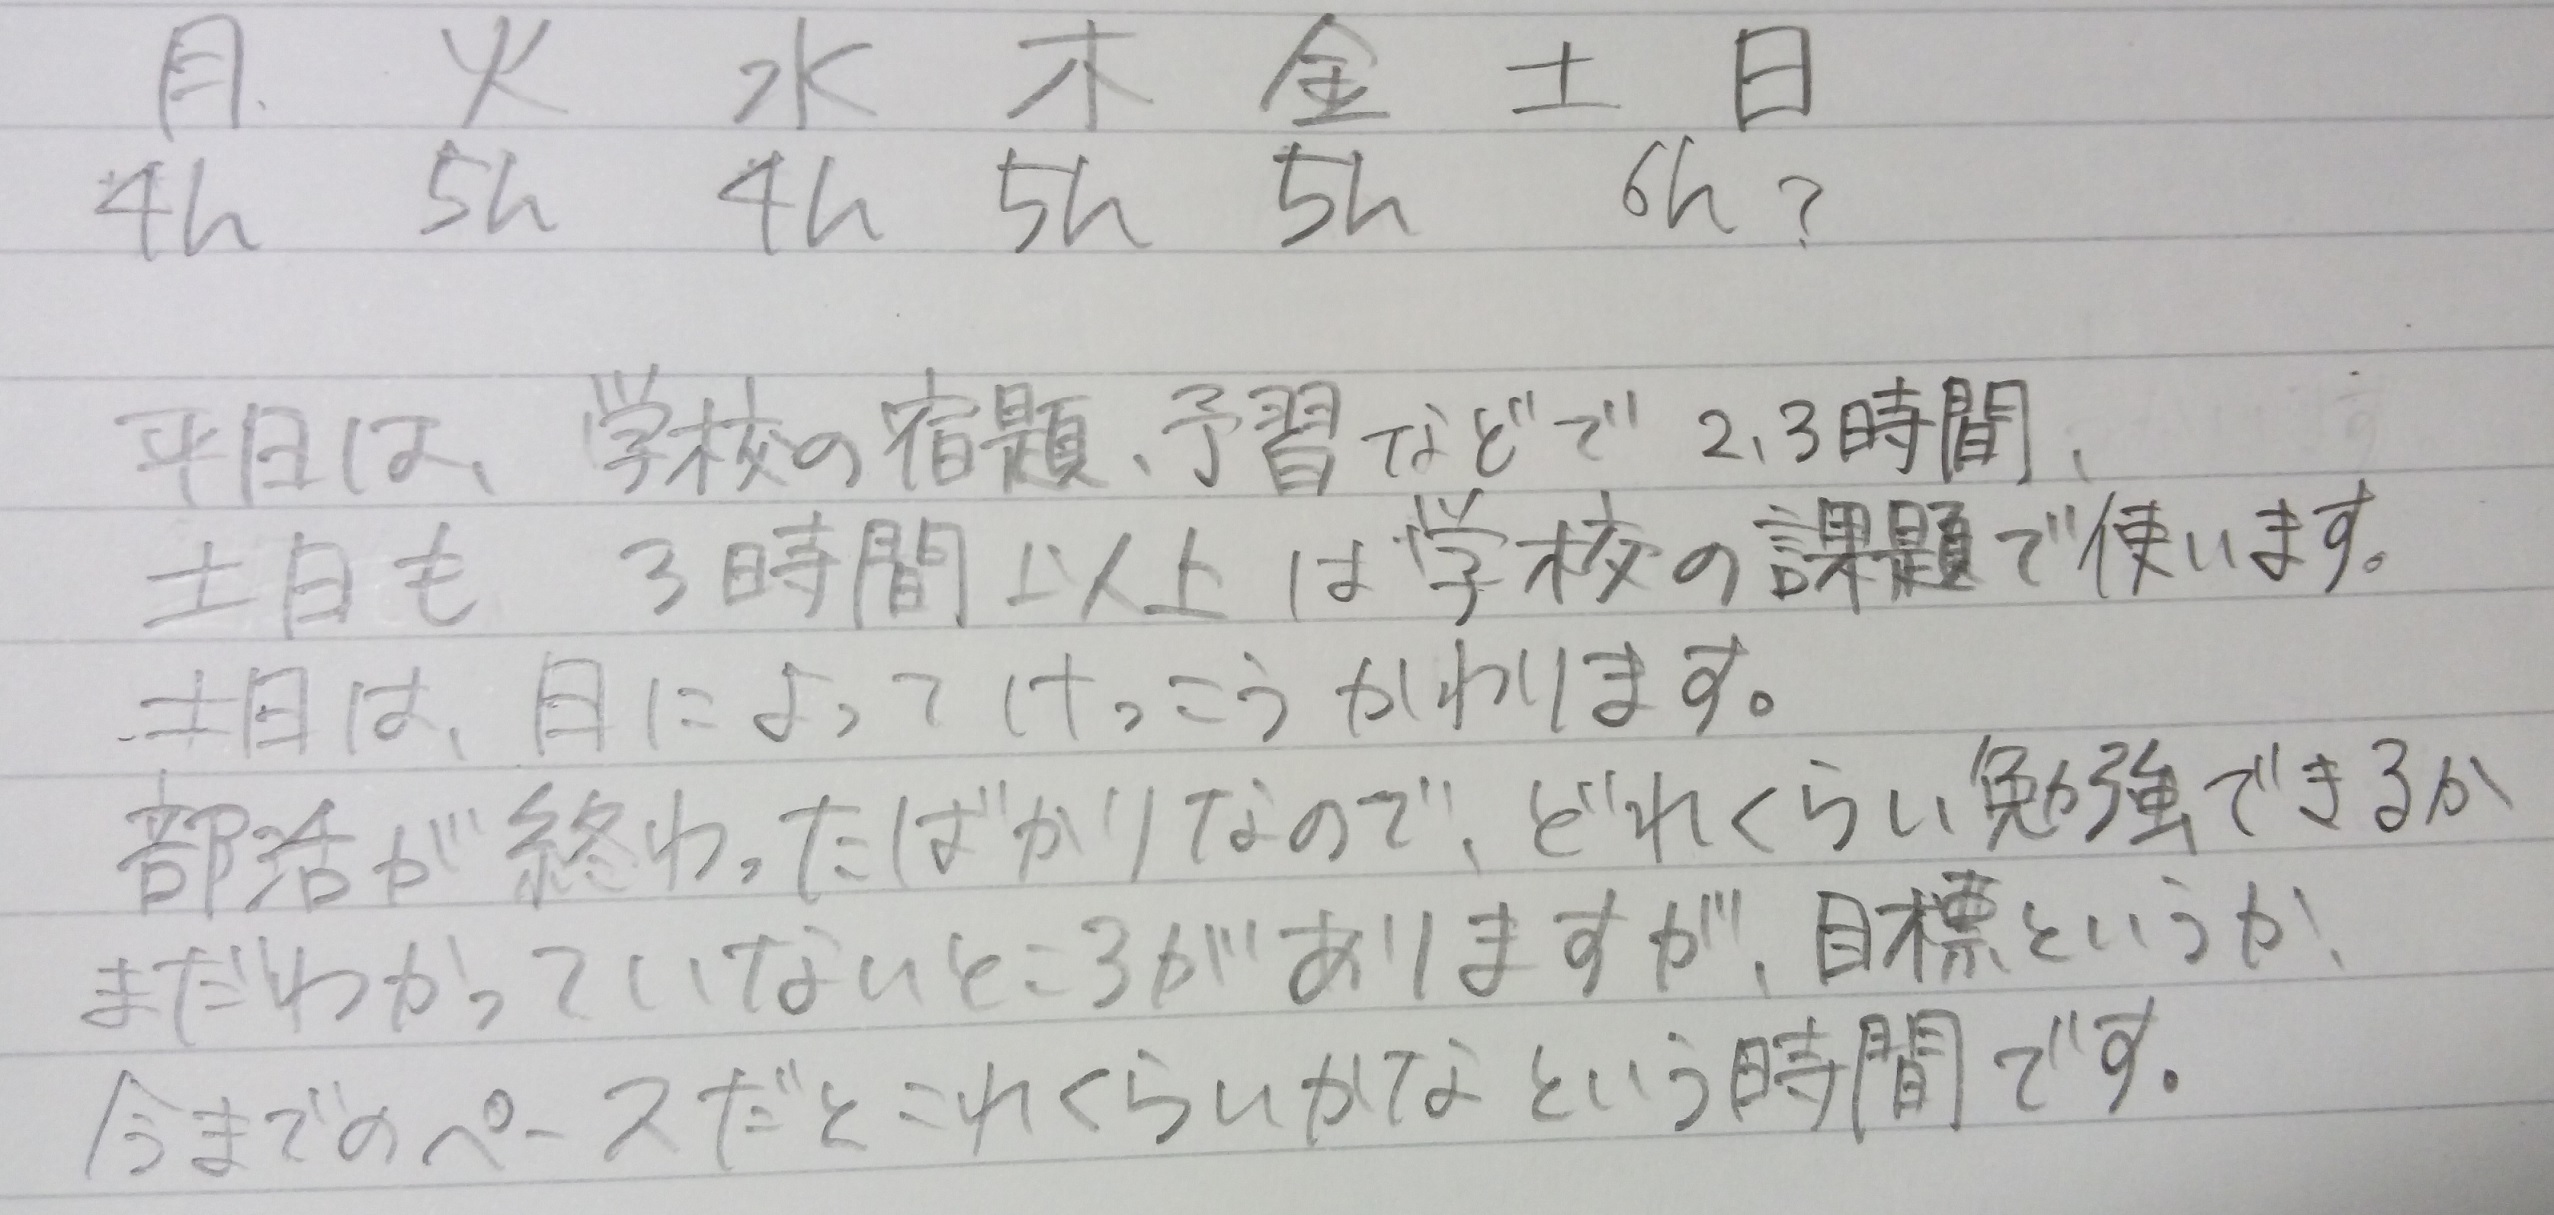 月 火 水 木 金 土 日
4h 5h 4h 5h 5h 6h?
平日は、学校の宿題、予習などで 2、3時間、
土日も 3時間以上は学校の課題で使います。
土日は、日によってけっこうかわります。
部活が終わったばかりなので、どれくらい勉強できるか
まだわかっていないところがありますが、目標というか、
今までのペースだとこれくらいかなという時間です。